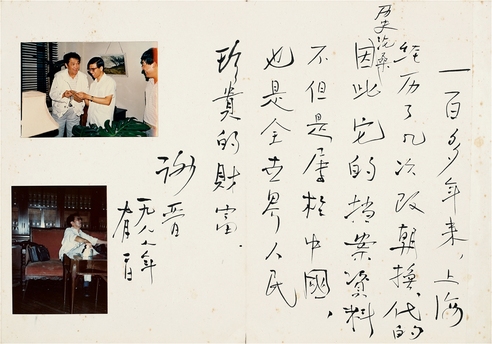 一百多年来，上海
经历了几次改朝换代的
历史沧桑，
因此它的档案资料
不但是属於中國，
也是全世界人民
珍貴的財富．
谢晋
一九八 年
九月 日